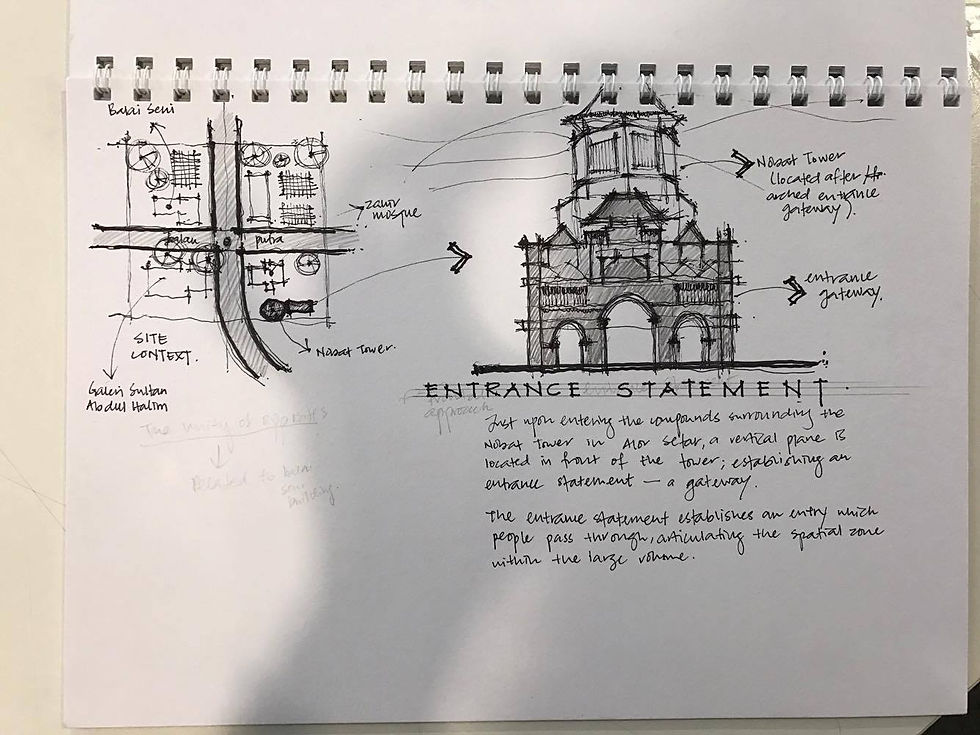 Balai Seni
zahir
mosque
jalan
putra
SITE
CONTEXT.
Nobat Tower.
Galeri Sultan
Abdul Halim
The unity of opposites
Related to balai
seni
building.
Nobat Tower
(located after the
arched entrance
gateway).
entrance
gateway.
ENTRANCE STATEMENT.
approach
Just upon entering the compounds surrounding the
Nobat Tower in Alor Setar, a vertical plane is
located in front of the tower; establishing an
entrance statement — a gateway.
The entrance statement establishes an entry which
people pass through, articulating the spatial zone
within the large volume.